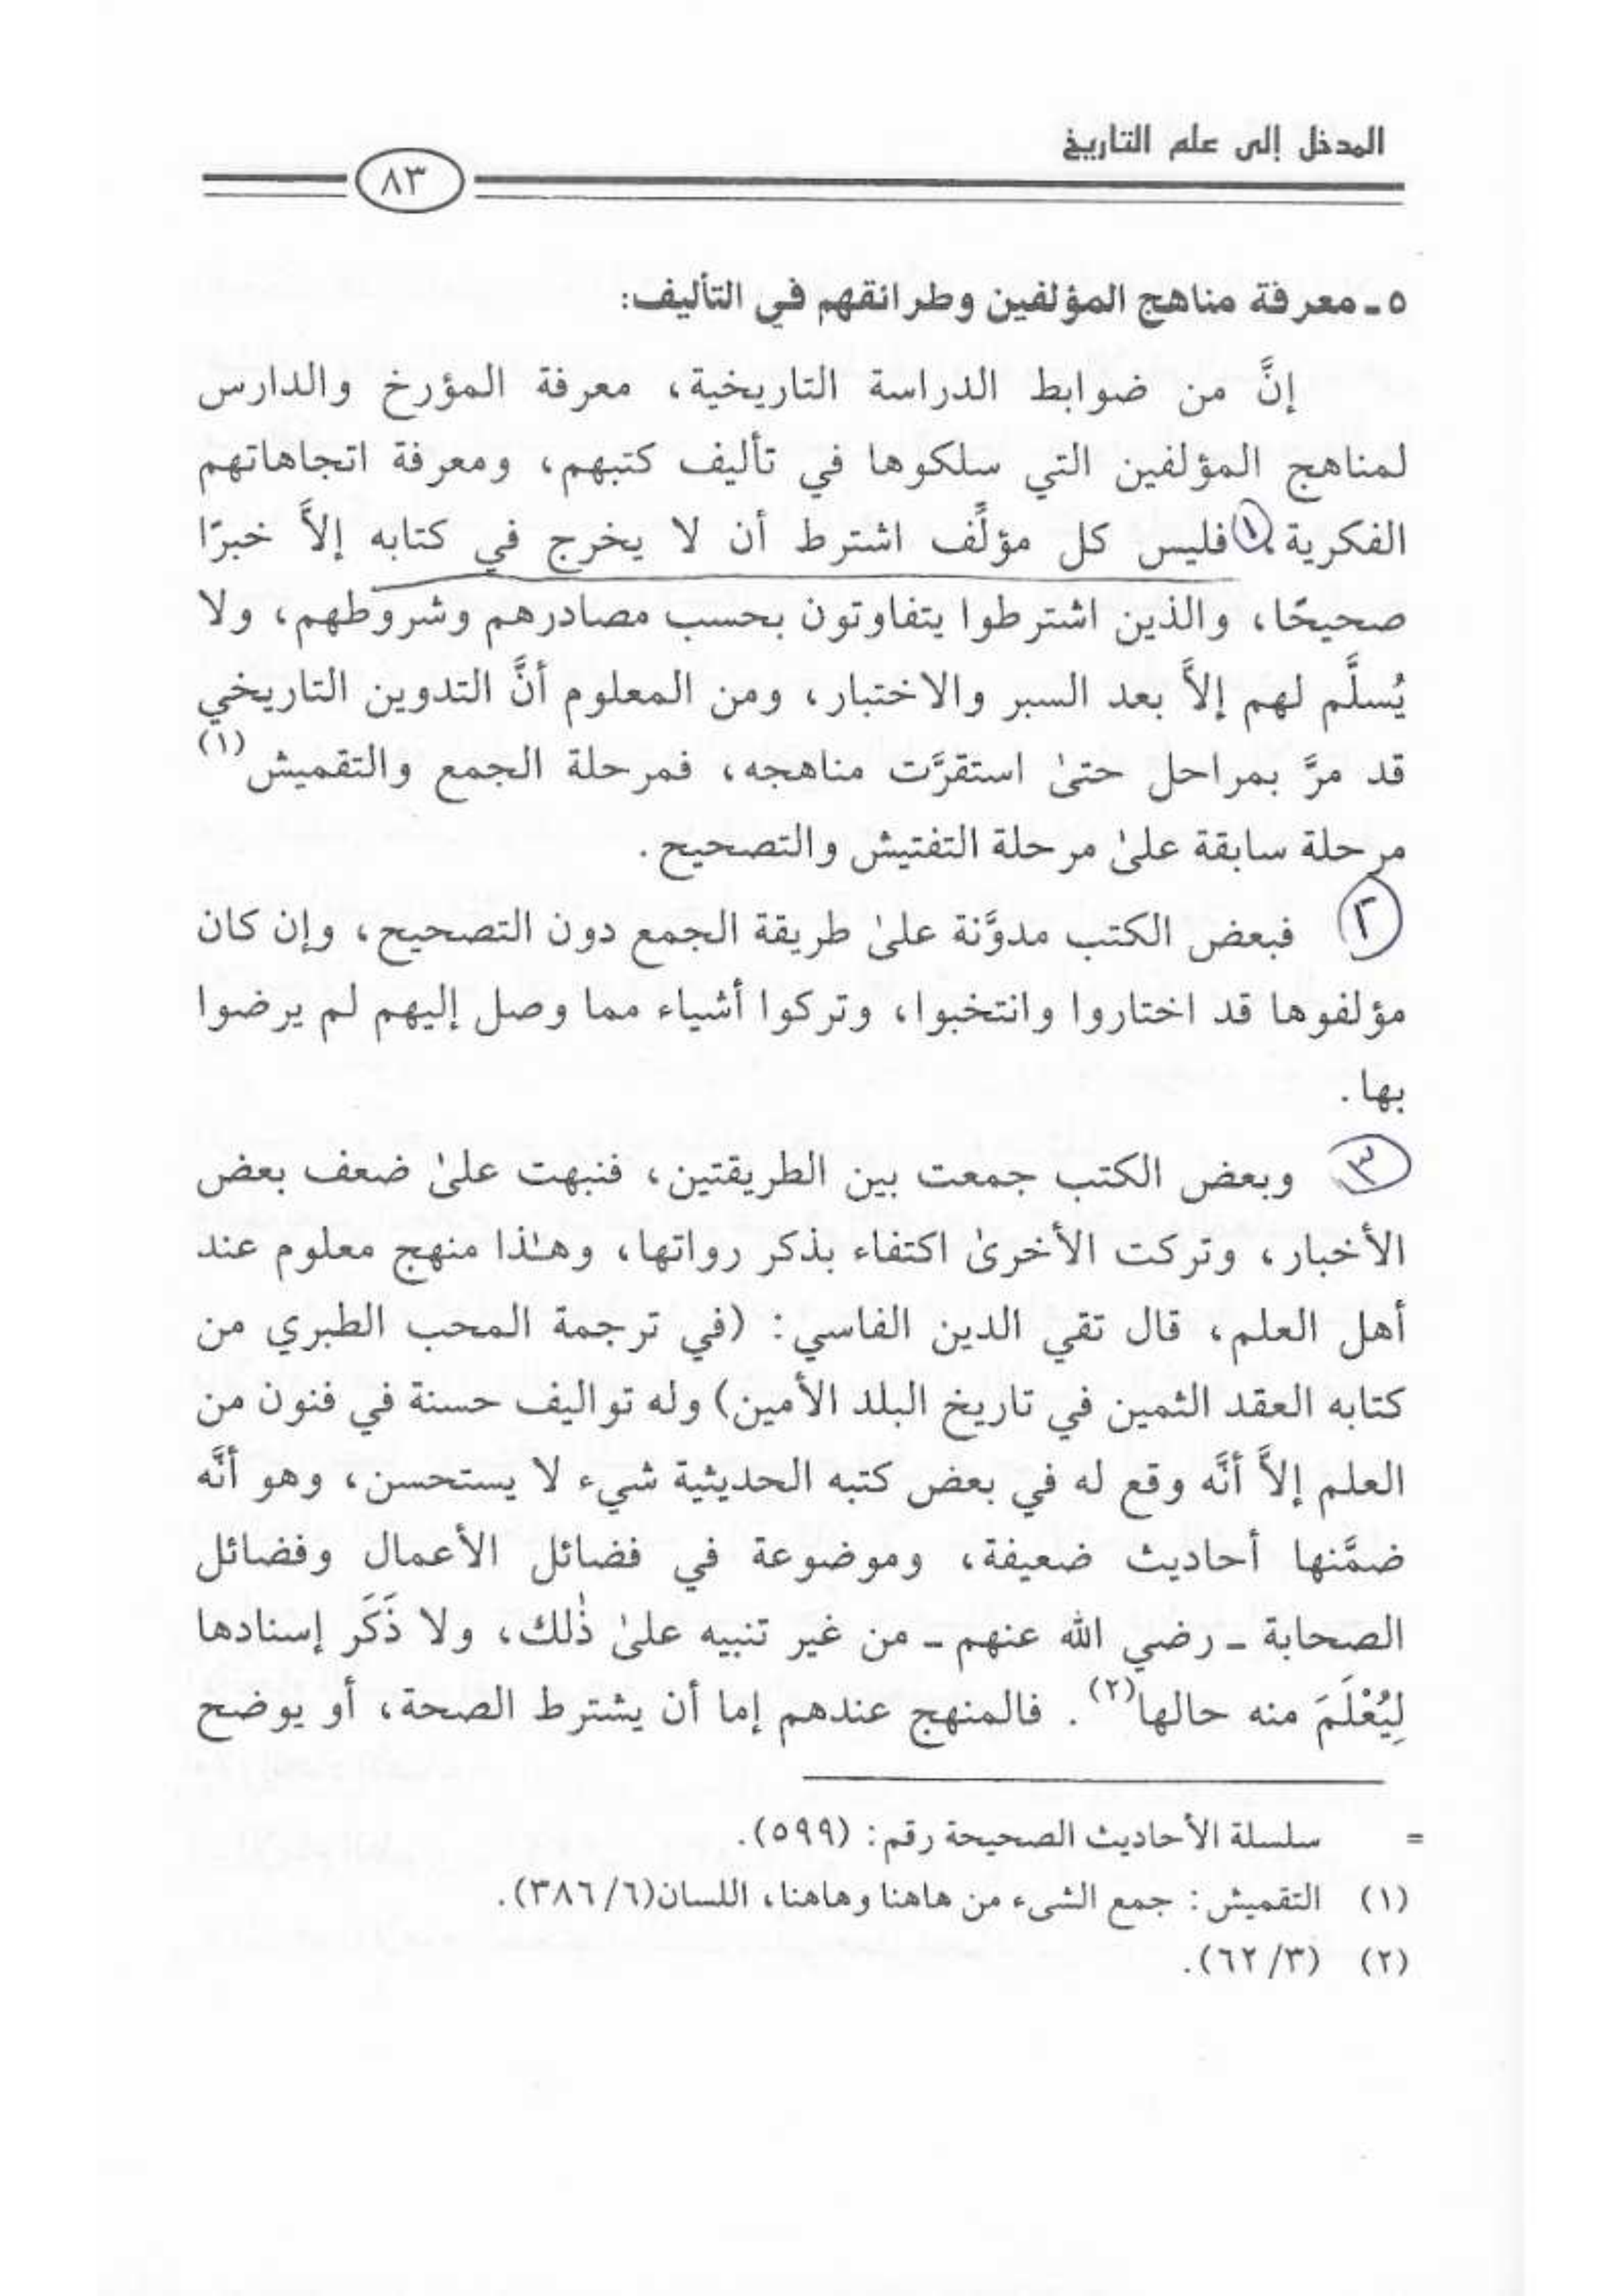 المدخل إلى علم التاريخ
٨٣
٥ ـ معرفة مناهج المؤلفين وطرائقهم في التأليف:
إنَّ من ضوابط الدراسة التاريخية، معرفة المؤرخ والدارس
لمناهج المؤلفين التي سلكوها في تأليف كتبهم، ومعرفة اتجاهاتهم
الفكرية. ١ فليس كل مؤلِّف اشترط أن لا يخرج في كتابه إلاَّ خبرًا
صحيحًا، والذين اشترطوا يتفاوتون بحسب مصادرهم وشروطهم، ولا
يُسلَّم لهم إلاَّ بعد السبر والاختبار، ومن المعلوم أنَّ التدوين التاريخي
قد مرَّ بمراحل حتىٰ استقرَّت مناهجه، فمرحلة الجمع والتقميش(١)
مرحلة سابقة علىٰ مرحلة التفتيش والتصحيح.
٢ فبعض الكتب مدوَّنة علىٰ طريقة الجمع دون التصحيح، وإن كان
مؤلفوها قد اختاروا وانتخبوا، وتركوا أشياء مما وصل إليهم لم يرضوا
بها.
٣ وبعض الكتب جمعت بين الطريقتين، فنبهت علىٰ ضعف بعض
الأخبار، وتركت الأخرىٰ اكتفاء بذكر رواتها، وهـٰذا منهج معلوم عند
أهل العلم، قال تقي الدين الفاسي: (في ترجمة المحب الطبري من
كتابه العقد الثمين في تاريخ البلد الأمين) وله تواليف حسنة في فنون من
العلم إلاَّ أنَّه وقع له في بعض كتبه الحديثية شيء لا يستحسن، وهو أنَّه
ضمَّنها أحاديث ضعيفة، وموضوعة في فضائل الأعمال وفضائل
الصحابة ـ رضي الله عنهم ـ من غير تنبيه علىٰ ذٰلك، ولا ذَكَر إسنادها
لِيُعْلَمَ منه حالها(٢). فالمنهج عندهم إما أن يشترط الصحة، أو يوضح
= سلسلة الأحاديث الصحيحة رقم: (٥٩٩).
(١) التقميش: جمع الشيء من هاهنا وهاهنا، اللسان(٦/ ٣٨٦).
(٢) (٣/ ٦٢).